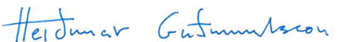 Heidmar Gudmundsson